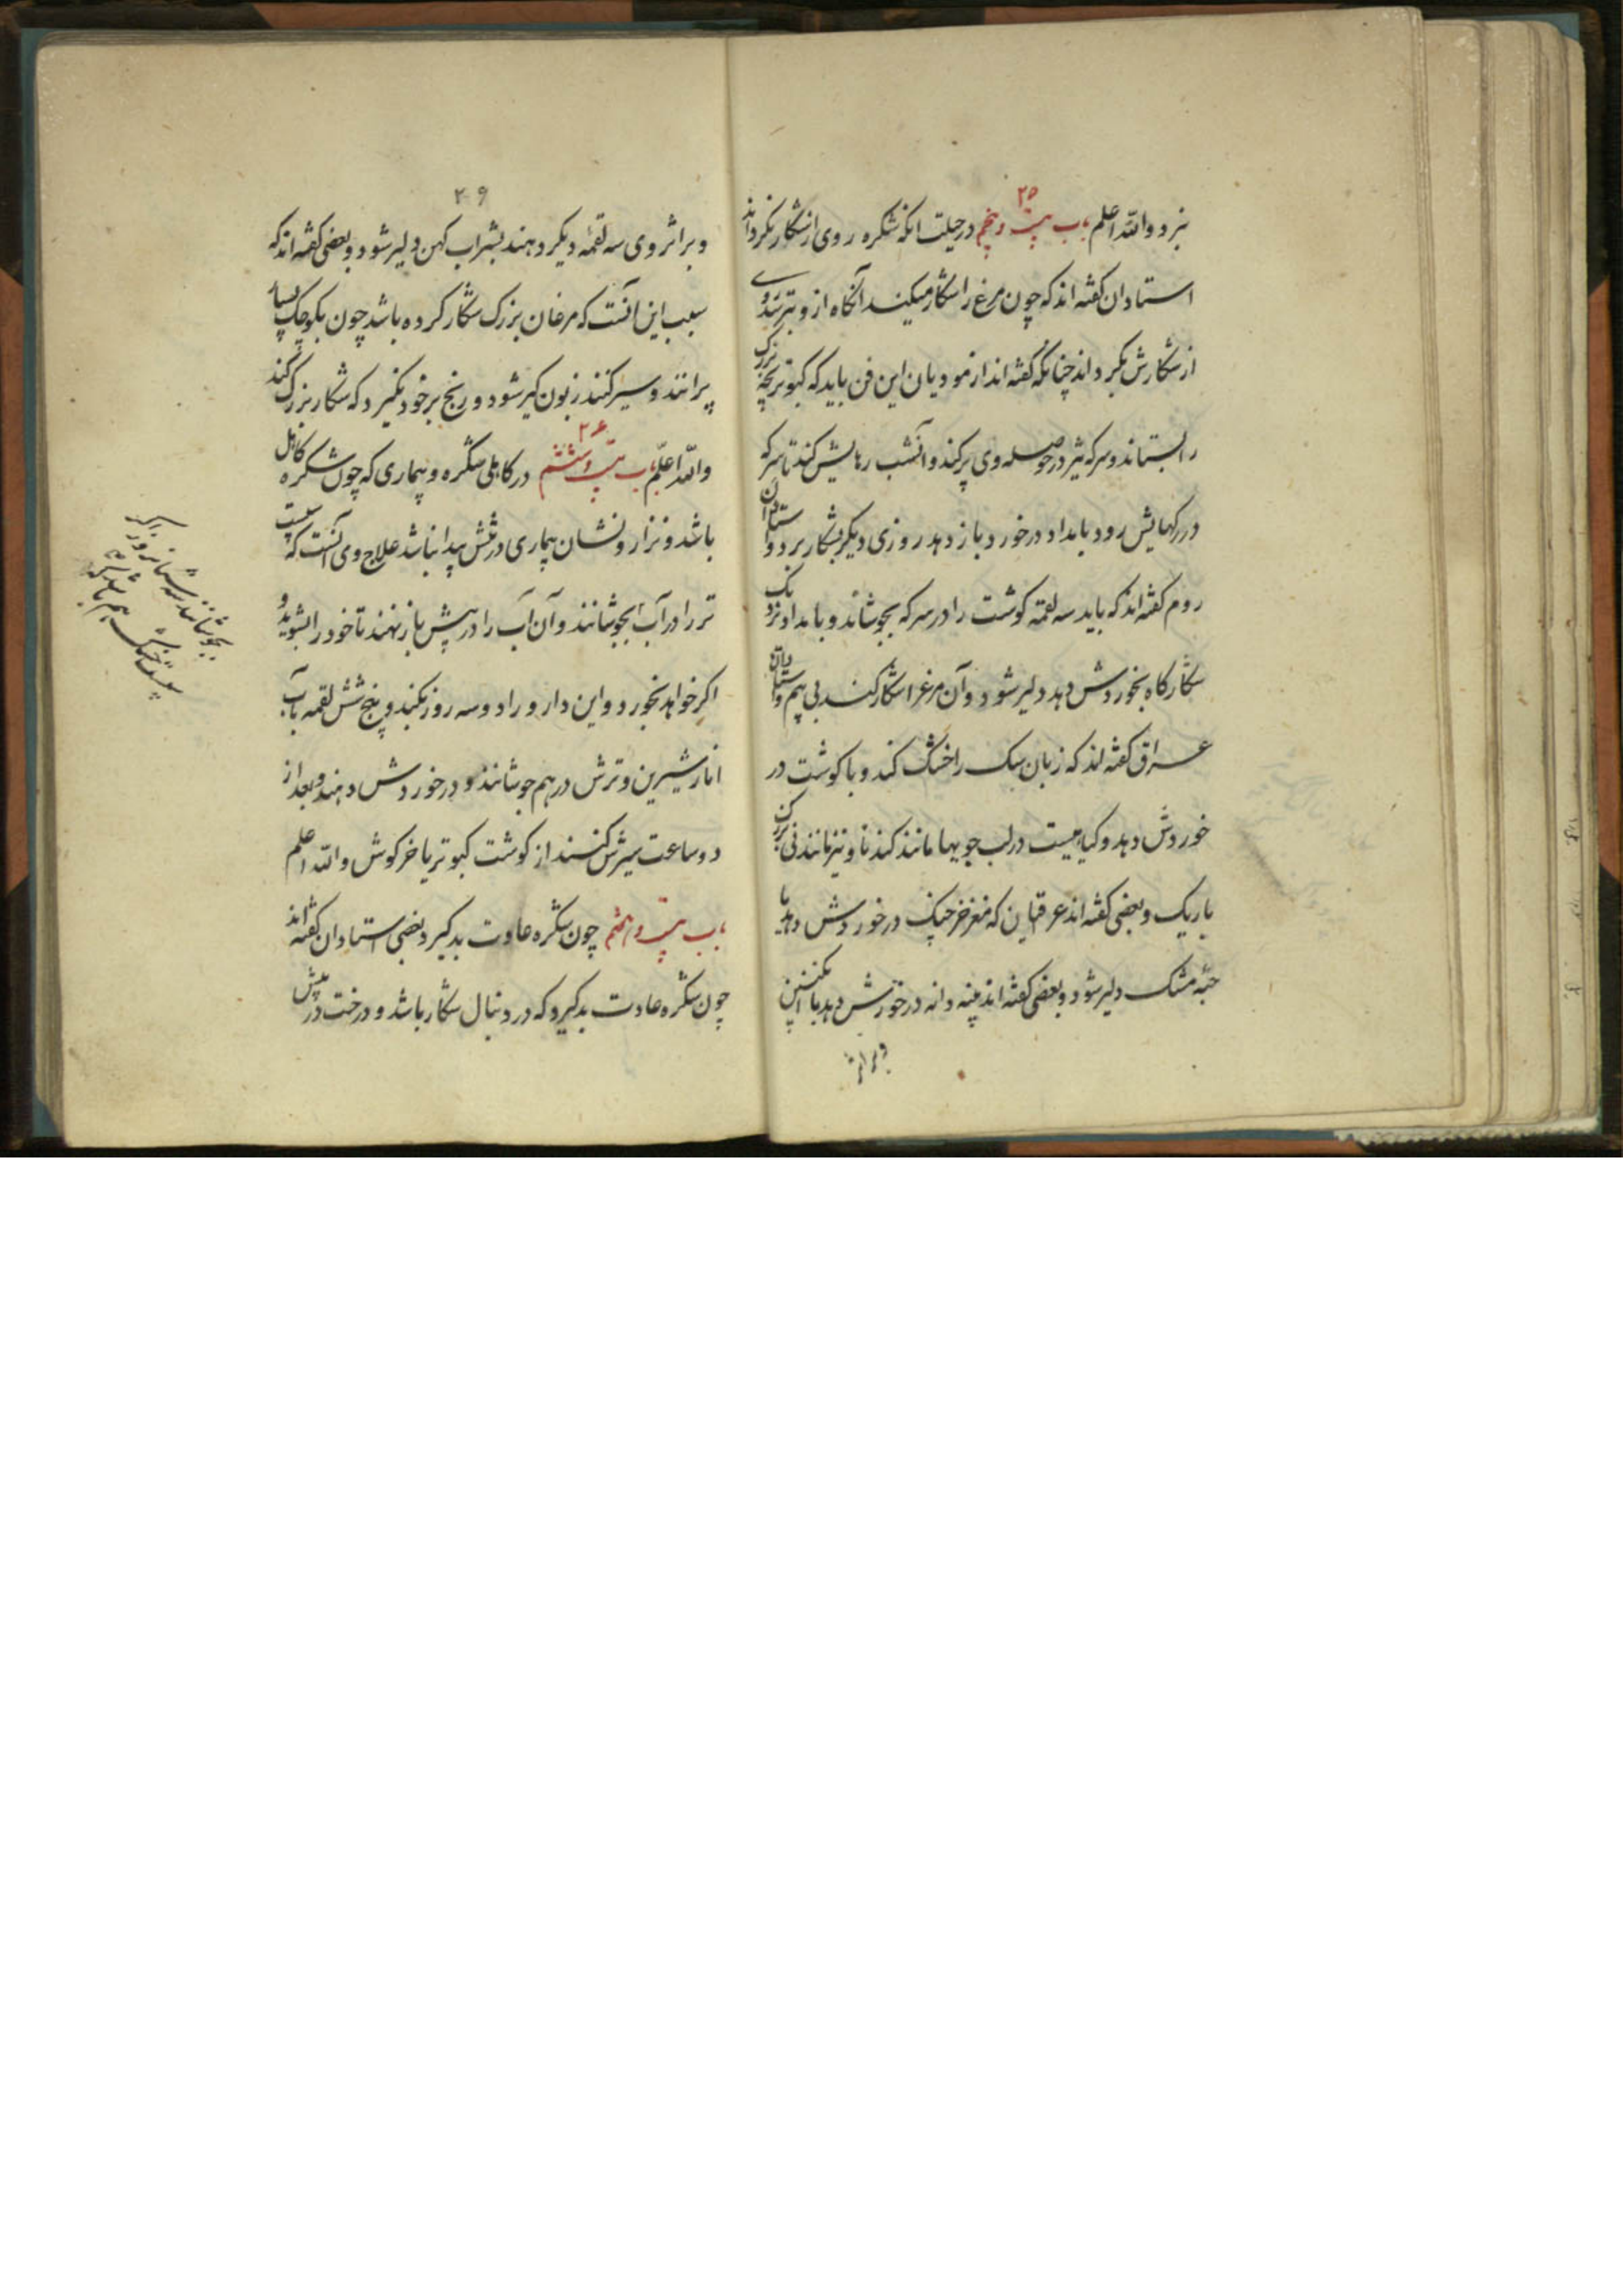 ۲۵
ببرد والله اعلم باب بیست و پنجم در حیلت انکه شکره روی از شکار نکرداند
استادان کفته اند که چون مرغ را شکار میکند آنکاه ازو بترسد روی
از شکارش بکرداند چنانکه کفته اند ازمودیان این فن باید که کبوتربچه بزرک
را بستاند و سرکه تیز در حوصله وی پر کند و آنشب رهایش کند تا سرکه
در رکهایش رود بامداد در خورد باز دهد روزی دیکر بشکار برد و استادان
روم کفته اند که باید سه لقمه کوشت را در سرکه بجوشاند و بامداد نزدیک
شکارکاه بخوردش دهد دلیر شود و آن مرغ را شکار کند بی بیم و استادان
عراق کفته اند که زبان سک را خشک کند و با کوشت در
خوردش دهد و کیاهیست در لب جویها مانند کندنا و نیز مانند نی برک
باریک و بعضی کفته اند عرقیان که مغز خرچنک در خوردش دهد با
حبه مشک دلیر شود و بعضی کفته اند پنبه دانه در خورش دهد با انکبین
و براثر
۲۹
و براثر وی سه لقمه دیکر دهند بشراب کهن دلیر شود و بعضی کفته اند که
سبب این آنست که مرغان بزرک شکار کرده باشد چون بکوچک بسیار
پرانند و سیر کنند زبون کیر شود و رنج بر خود نکیرد که شکار بزرک کند
۲۶
والله اعلم باب بیست و ششم در کاهلی شکره و بیماری که چون شکره کاهل
باشد و نزار و نشان بیماری در تنش پیدا نباشد علاج وی آنست که سپست
تر را در آب بجوشانند و آن آب را در پیش باز نهند تا خود را بشوید و
اکر خواهد بخورد و این دارو را دو سه روز بکنند و پنج شش لقمه بآب
انار شیرین و ترش در هم جوشانند و در خوردش دهند و بعد از
دو ساعت سیرش کنند از کوشت کبوتر یا خرکوش والله اعلم
باب بیست و هفتم چون شکره عادت بدکیرد بعضی استادان کفته اند
چون شکره عادت بدکیرد که در دنبال شکار باشد و درخت در پیش